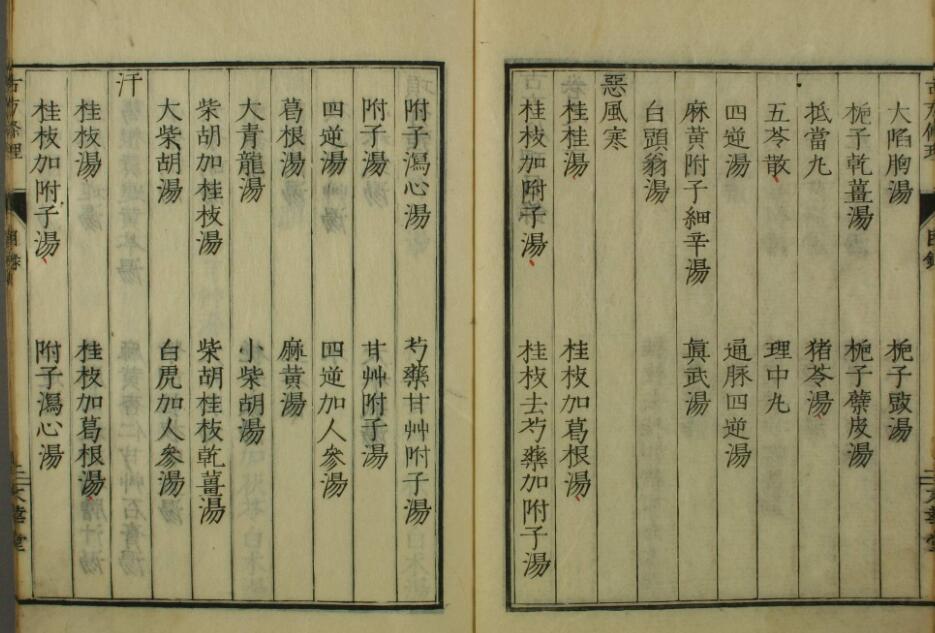 大陷胸湯 梔子豉湯
梔子乾薑湯 梔子蘗皮湯
抵當丸 猪苓湯
五苓散 理中丸
四逆湯 通脈四逆湯
麻黃附子細辛湯 眞武湯
白頭翁湯
惡風寒
桂桂湯 桂枝加葛根湯
桂枝加附子湯 桂枝去芍藥加附子湯
附子瀉心湯 芍藥甘艸附子湯
附子湯 甘艸附子湯
四逆湯 四逆加人參湯
葛根湯 麻黃湯
大青龍湯 小柴胡湯
柴胡加桂枝湯 柴胡桂枝乾薑湯
大柴胡湯 白虎加人參湯
汗
桂枝湯 桂枝加葛根湯
桂枝加附子湯 附子瀉心湯